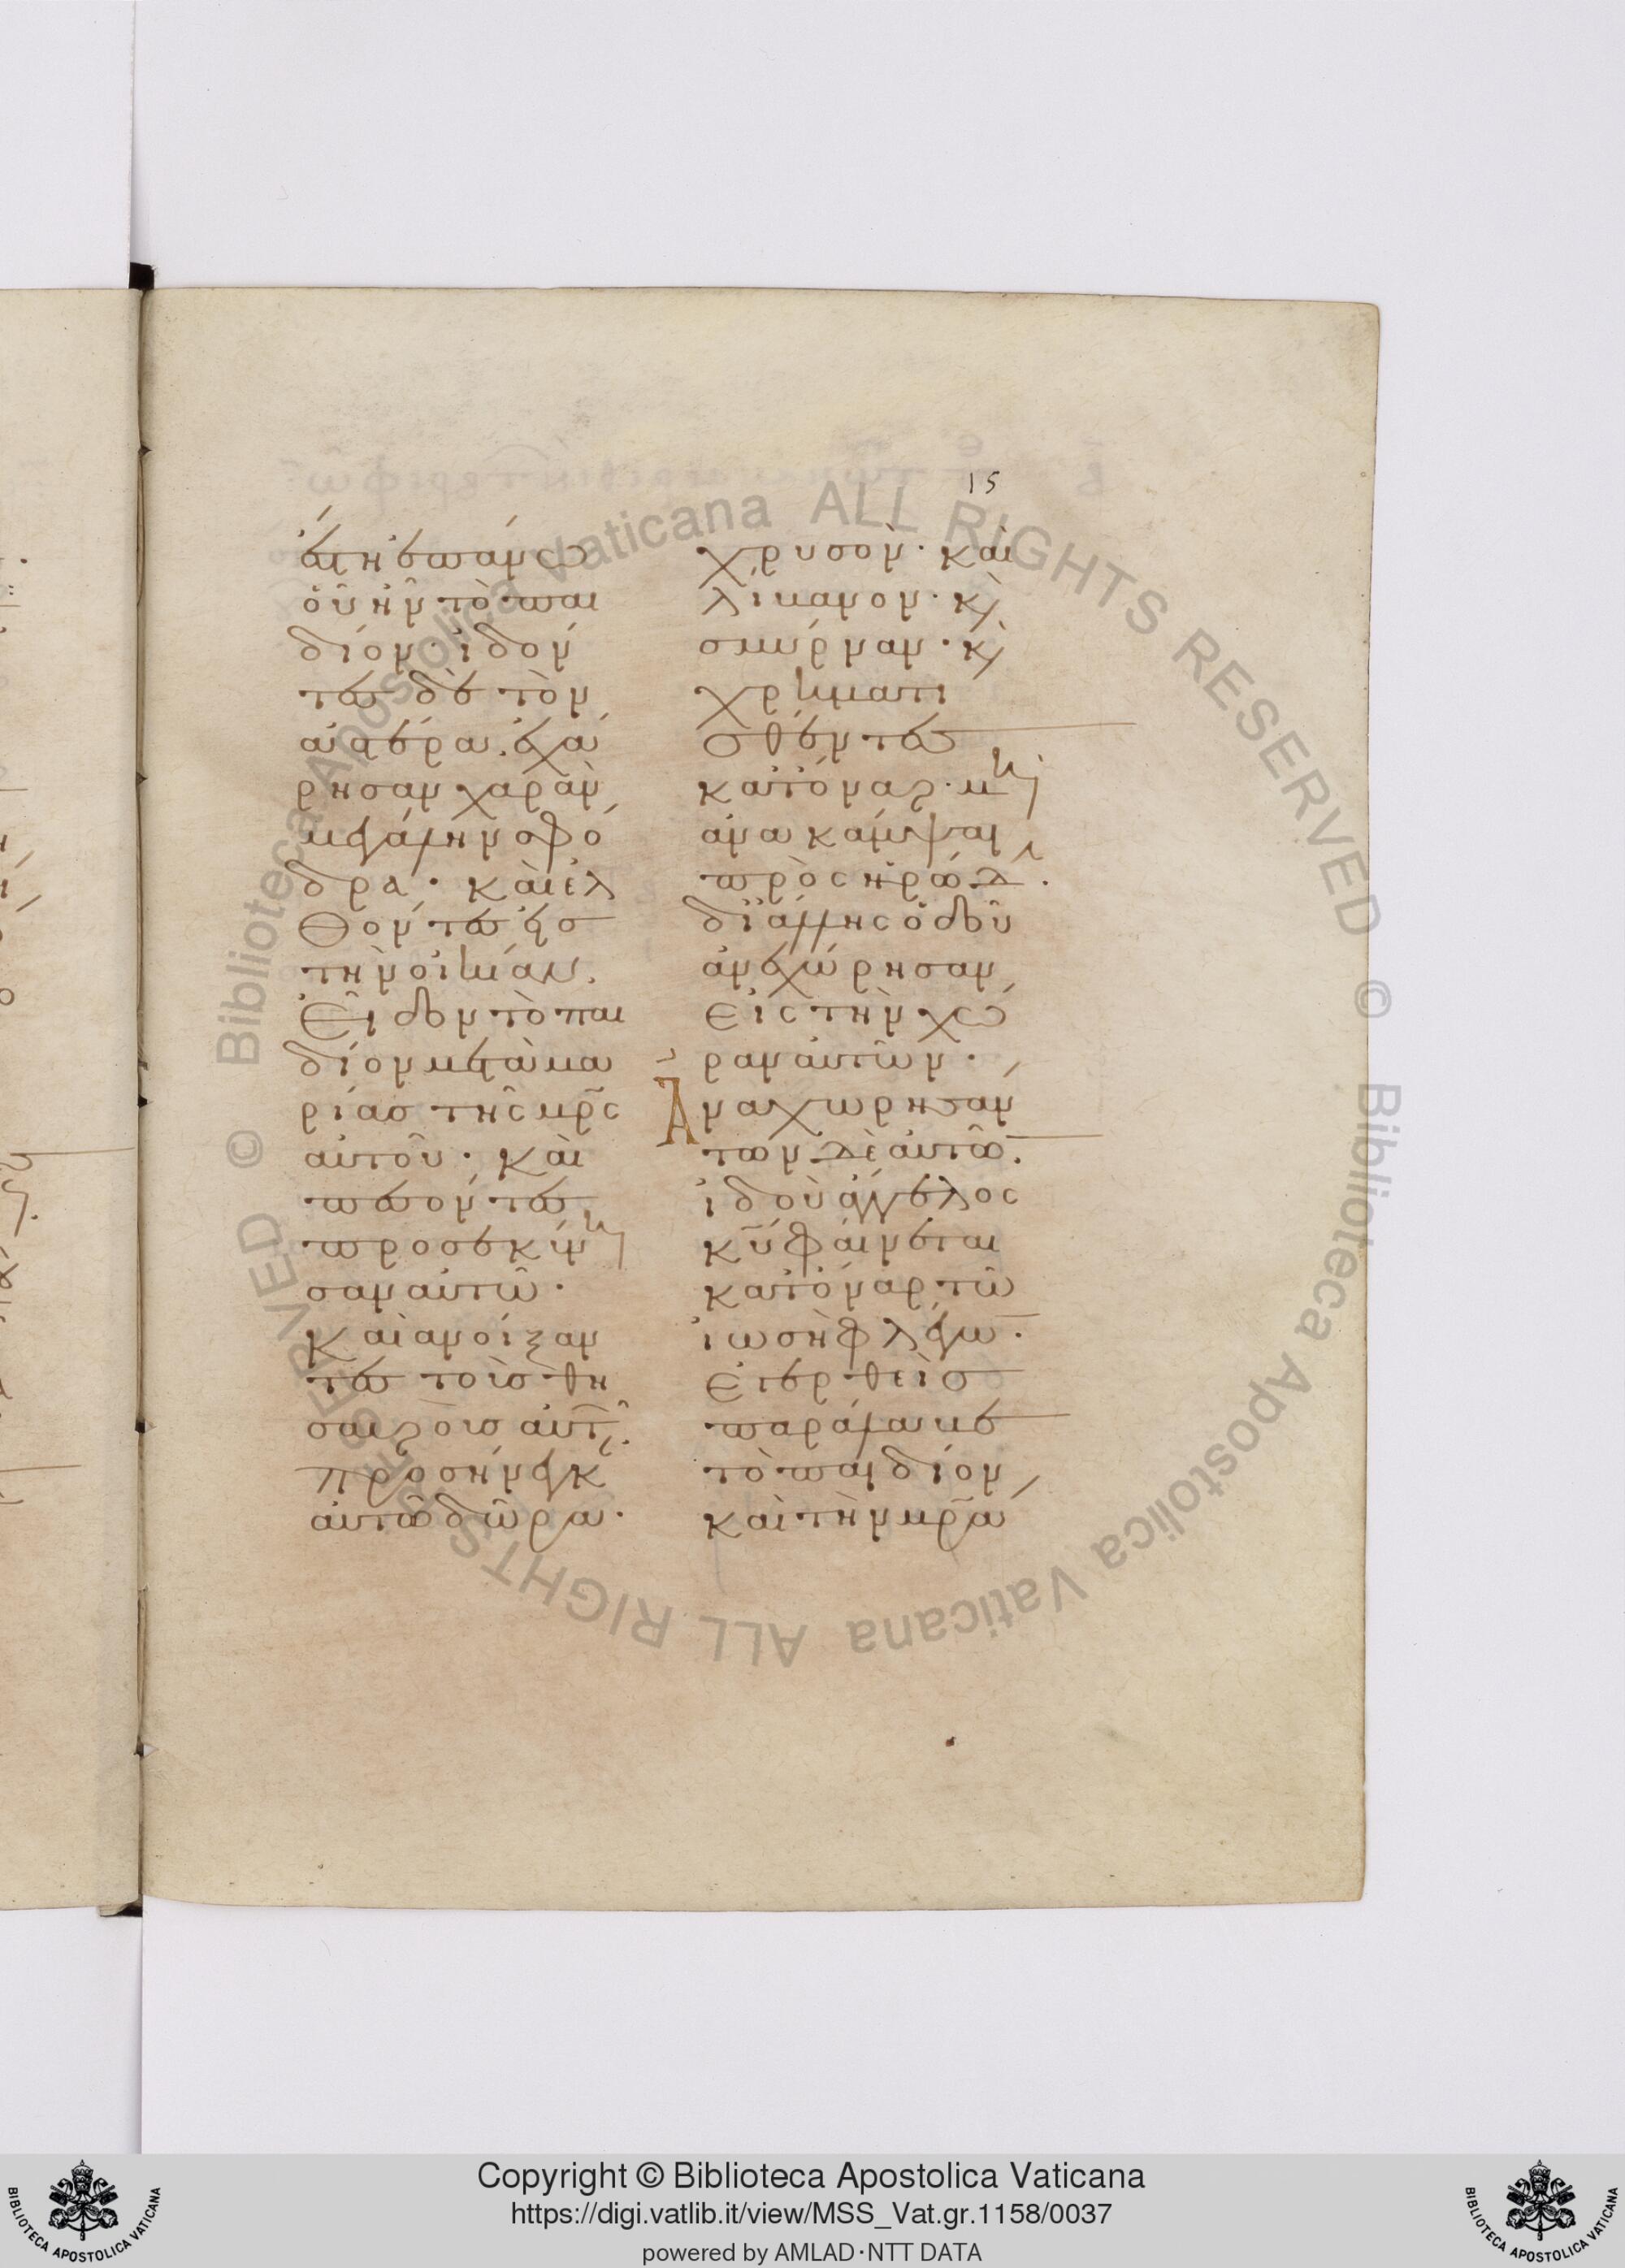 15
ἔστη ἐπάνω
οὗ ἦν τὸ παι
δίον· ἰδόν
τες δὲ τὸν
ἀστέρα, ἐχά
ρησαν χαρὰν
μεγάλην σφό
δρα· καὶ ἐλ
θόντες εἰς
τὴν οἰκίαν,
εἶδον τὸ παι
δίον μετὰ μα
ρίας τῆς μρ̅ς
αὐτοῦ· καὶ
πεσόντες
προσεκύνη
σαν αὐτῷ·
Καὶ ἀνοίξαν
τες τοὺς θη
σαυροὺς αὐτῶν
προσήνεγκαν
αὐτῷ δῶρα·
χρυσὸν· καὶ
λίβανον· κὶ
σμύρναν· κὶ
χρηματι
σθέντες
κατ' ὄναρ· μὴ
ἀνακάμψαι
πρὸς ἡρώδην·
δι' ἄλλης ὁδοῦ
ἀνεχώρησαν
εἰς τὴν χώ
ραν αὐτῶν·
Ἀναχωρησάν
των δὲ αὐτῶν·
ἰδοὺ ἄγγελος
κ̅υ̅ φαίνεται
κατ' ὄναρ τῷ
ἰωσὴφ λέγων·
Ἐγερθεὶς
παράλαβε
τὸ παιδίον,
καὶ τὴν μρ̅α
Copyright © Biblioteca Apostolica Vaticana
https://digi.vatlib.it/view/MSS_Vat.gr.1158/0037
powered by AMLAD·NTT DATA
© Biblioteca Apostolica Vaticana ALL RIGHTS RESERVED
© Biblioteca Apostolica Vaticana ALL RIGHTS RESERVED
BIBLIOTECA APOSTOLICA VATICANA
BIBLIOTECA APOSTOLICA VATICANA